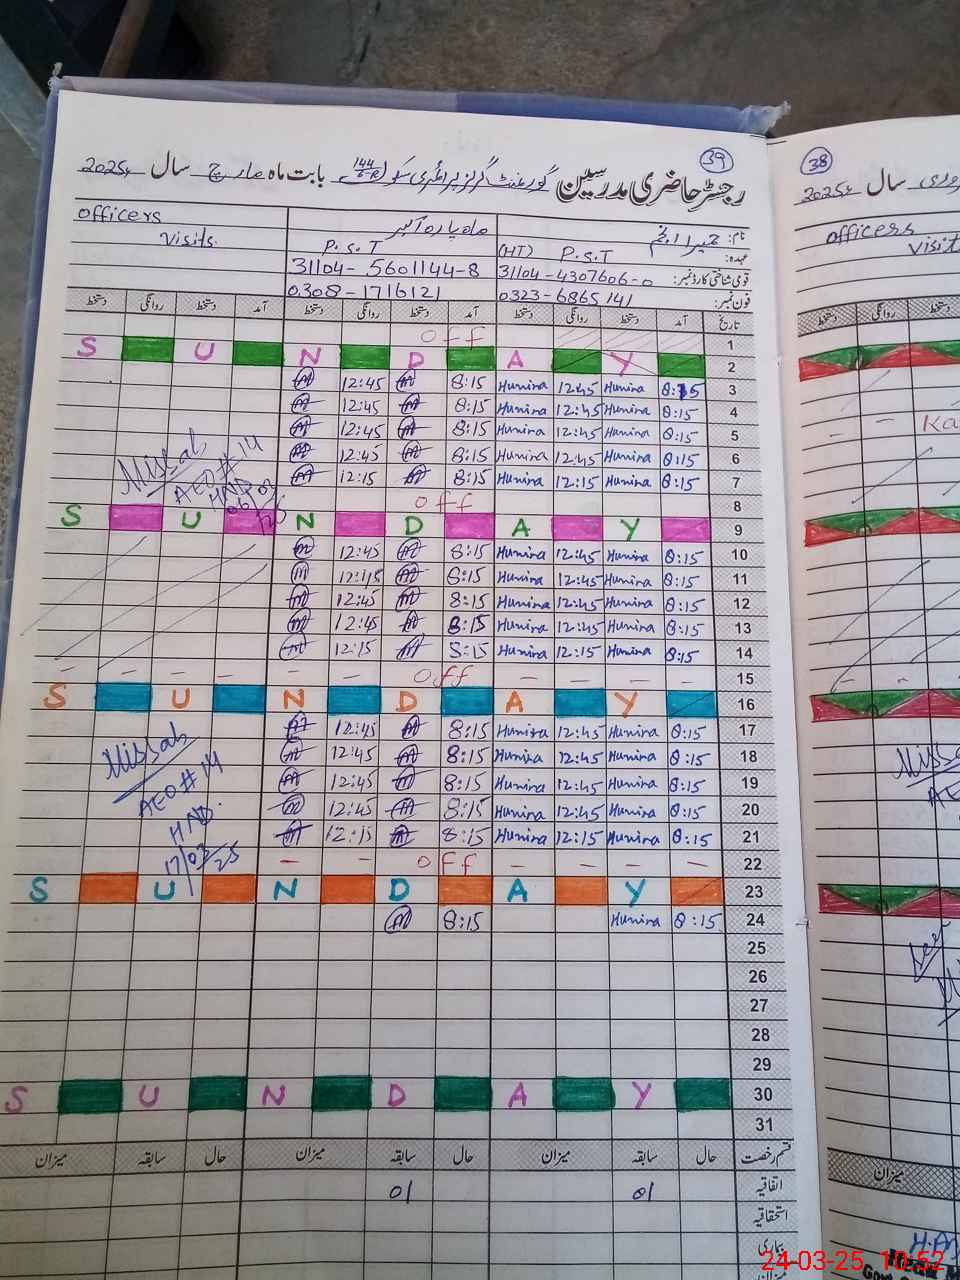 39
رجسٹر حاضری مدرسین گورنمنٹ گرلز پرائمری سکول 144/6-R بابت ماہ مارچ سال 2025ء
officers
Visits.
نام:
ماہ پارہ اکبر
عہدہ: (HT) P.S.T
P.S.T
قومی شناختی کارڈ نمبر: 31104-4307606-0
31104-5601144-8
فون نمبر: 0323-6865141
0308-1716121
تاریخ آمد دستخط روانگی دستخط آمد دستخط روانگی دستخط آمد دستخط روانگی دستخط
off 1
S U N D A Y 2
12:45 8:15 Humira 12:45 Humira 8:15 3
12:45 8:15 Humira 12:45 Humira 8:15 4
12:45 8:15 Humira 12:45 Humira 8:15 5
12:45 8:15 Humira 12:45 Humira 8:15 6
12:15 8:15 Humira 12:15 Humira 8:15 7
Missab
AEO#14
HND
off 8
S U N D A Y 9
12:45 8:15 Humira 12:45 Humira 8:15 10
12:45 8:15 Humira 12:45 Humira 8:15 11
12:45 8:15 Humira 12:45 Humira 8:15 12
12:45 8:15 Humira 12:45 Humira 8:15 13
12:15 8:15 Humira 12:15 Humira 8:15 14
- - - - off - - - - 15
S U N D A Y 16
12:45 8:15 Humira 12:45 Humira 8:15 17
12:45 8:15 Humira 12:45 Humira 8:15 18
12:45 8:15 Humira 12:45 Humira 8:15 19
12:45 8:15 Humira 12:45 Humira 8:15 20
12:15 8:15 Humira 12:15 Humira 8:15 21
Missab
AEO#14
HND.
17/03/25
- - off - - - - 22
S U N D A Y 23
8:15 Humira 8:15 24
25
26
27
28
29
S U N D A Y 30
31
قسم رخصت حال سابقہ میزان حال سابقہ میزان حال سابقہ میزان
اتفاقیہ 01 01
استحقاقیہ
بیماری
میزان
38
سال 2025ء
officers
visit
دستخط روانگی دستخط
میزان
24-03-25 10:52